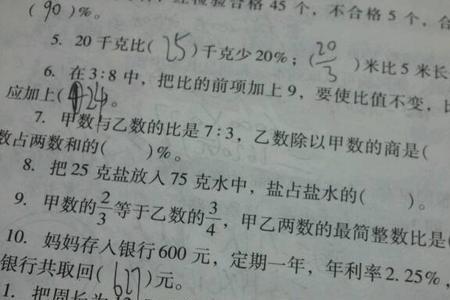 (90)%。 经检验合格 45 个，不合格 5 个，合
5. 20 千克比(25)千克少20%；(20/3)米比 5 米长
6. 在 3∶8 中，把比的前项加上 9，要使比值不变，比
应加上(24)。
7. 甲数与乙数的比是 7∶3，乙数除以甲数的商是(
数占两数和的(    )%。
8. 把 25 克盐放入 75 克水中，盐占盐水的(    )。
9. 甲数的2/3等于乙数的3/4，甲乙两数的最简整数比是(
10. 妈妈存入银行600 元，定期一年，年利率2.25%，
银行共取回(627)元。
1. 把周长为